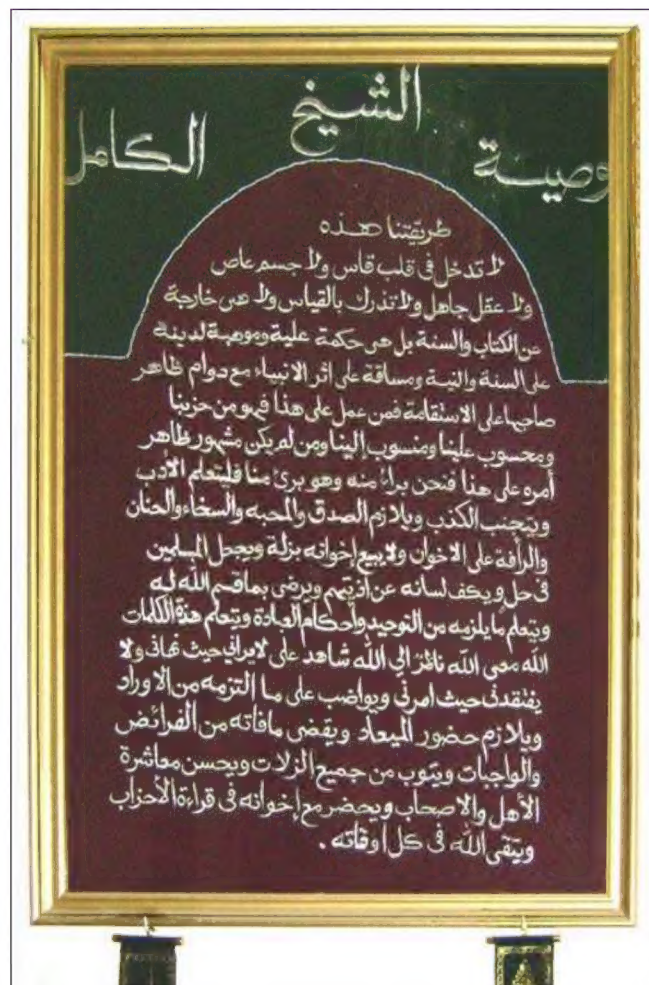 وصية الشيخ الكامل
طريقتنا هذه
لا تدخل في قلب قاس ولا جسم عاص
ولا عقل جاهل ولا تدرك بالقياس ولا هى خارجة
عن الكتاب والسنة بل هى حكمة علية وموهبة لدينة
على السنة والنية ومساقة على اثر الانبياء مع دوام ظاهر
صاحبها على الاستقامة فمن عمل على هذا فهو من حزبنا
ومحسوب علينا ومنسوب إلينا ومن لم يكن مشهور ظاهر
أمره على هذا فنحن برائ منه وهو برئ منا فليتعلم الأدب
ويتجنب الكذب ويلازم الصدق والمحبه والسخاء والحنان
والرأفة على الاخوان ولا يبيع إخوانه بزلة ويجعل المسلمين
فى حل ويكف لسانه عن أذيتهم ويرضى بما قسم الله له
ويتعلم ما يلزمه من التوحيد وأحكام العبادة ويتعلم هذة الكلمات
الله معى الله ناظر الي الله شاهد على لا يراني حيث نهانى ولا
يفتقدنى حيث امرنى ويواضب على ما التزمه من الاوراد
ويلازم حضور الميعاد ويقضى ما فاته من الفرائض
والواجبات ويتوب من جميع الزلات ويحسن معاشرة
الأهل والاصحاب ويحضر مع إخوانه فى قراءة الأحزاب
ويتقى الله فى كل اوقاته .